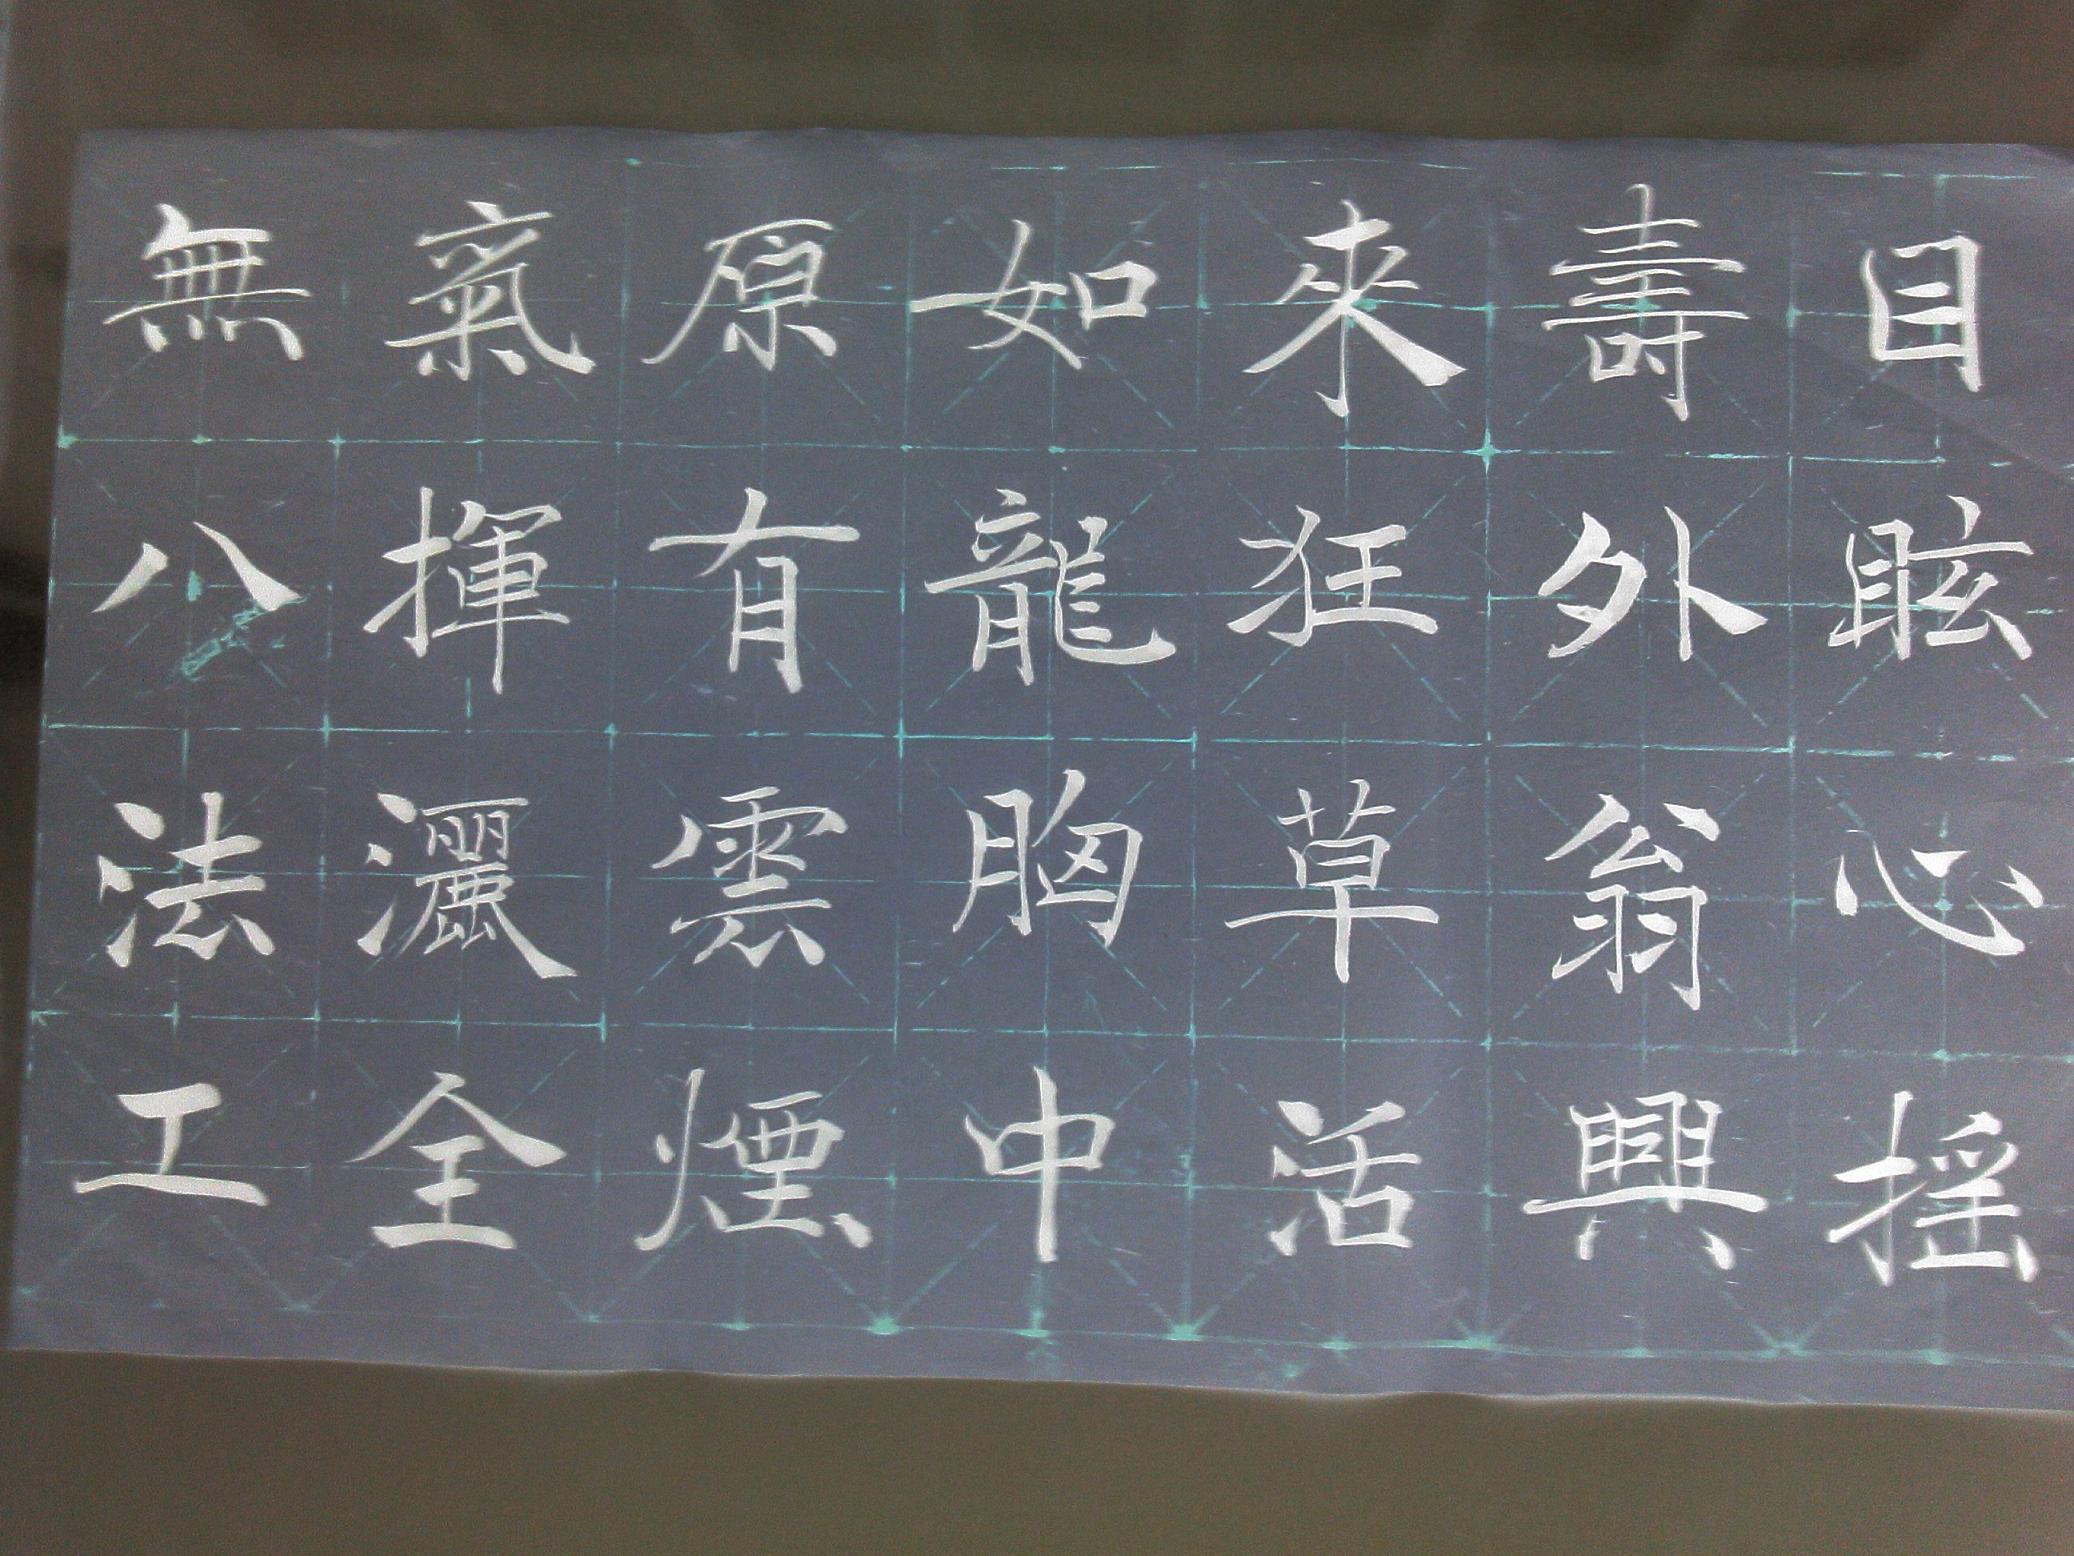 目眩心搖
壽外翁興
來狂草活
如龍胸中
原有雲煙
氣揮灑全
無八法工